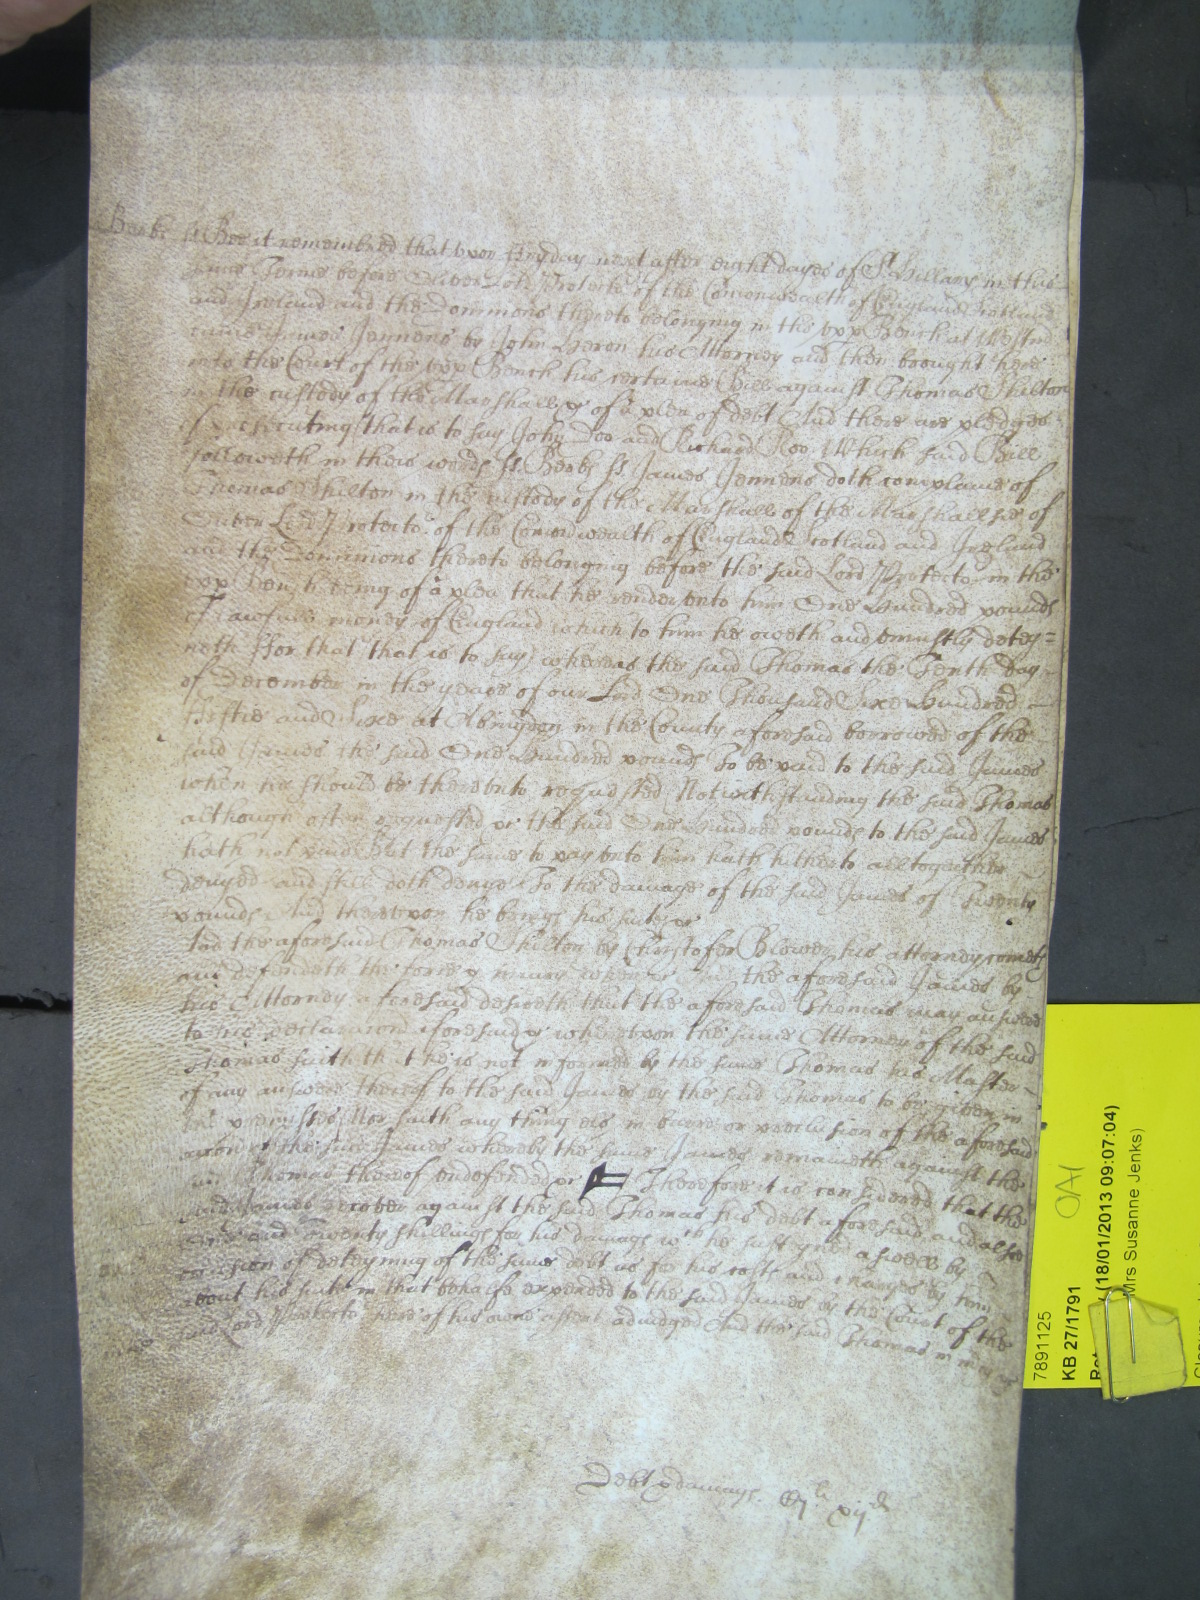 Berks ss Bee it remembred that vpon Fryday next after eight dayes of St Hillary in this
same Terme before Oliver Lord Protector of the Comonwealth of England Scotland
and Ireland and the Dominions thereto belonging in the vpp Bench at Westmr
came James Jennens by John Heron his Attorney and then brought here
into the Court of the vpp Bench his certaine Bill against Thomas Shilton
in the custody of the Marshall &c of a plea of debt And there are pledges
of prosecuting that is to say John Doo and Richard Roo Which said Bill
followeth in theis words ss. Berks ss James Jennens doth complaine of
Thomas Shilton in the custody of the Marshall of the Marshallsie of
Oliver Lord Protector of the Comonwealth of England Scotland and Ireland
and the Dominions thereto belonging before the said Lord Protector in the
vpp Bench being of a plea that he render vnto him One Hundred pounds
of lawfull money of England which to him he oweth and vniustly detey=
neth Ffor that that is to say whereas the said Thomas the Tenth day
of December in the yeare of our Lord One Thousand Sixe Hundred
Fiftie and Sixe at Abingdon in the County aforesaid borrowed of the
said James the said One Hundred pounds To be paid to the said James
when he should be therevnto requested Notwithstanding the said Thomas
although often requested &c the said One Hundred pounds to the said James
hath not paid But the same to pay vnto him hath hitherto alltogether
denyed and still doth denye To the damage of the said James of Twenty
pounds And therevpon he brings his suite &c
And the aforesaid Thomas Shilton by Christofer Blower his attorney cometh
and defendeth the force & iniury when &c And the aforesaid James by
his Attorney aforesaid desireth that the aforesaid Thomas may answere
to his declaracon aforesaid &c wherevpon the same Attorney of the said
Thomas saith that he is not informed by the same Thomas his Master
of any answere thereof to the said James by the said Thomas to be given in
the premisses Nor saith any thing els in barre or preclusion of the aforesaid
accon of the said James whereby the same James remaineth against the
said Thomas thereof vndefended &c Therefore it is considered that the
said James recover against the said Thomas his debt aforesaid and also
One and Twenty shillings for his damages wch he susteyned aswell by
occasion of deteyning of the same debt as for his costs and charges by him
about his suite in that behalfe expended to the said James by the Court of the
said Lord Protector here of his owne assent adiudged And the said Thomas in mercy &c
Debt & damages
7891125
KB 27/1791
(18/01/2013 09:07:04)
Mrs Susanne Jenks)